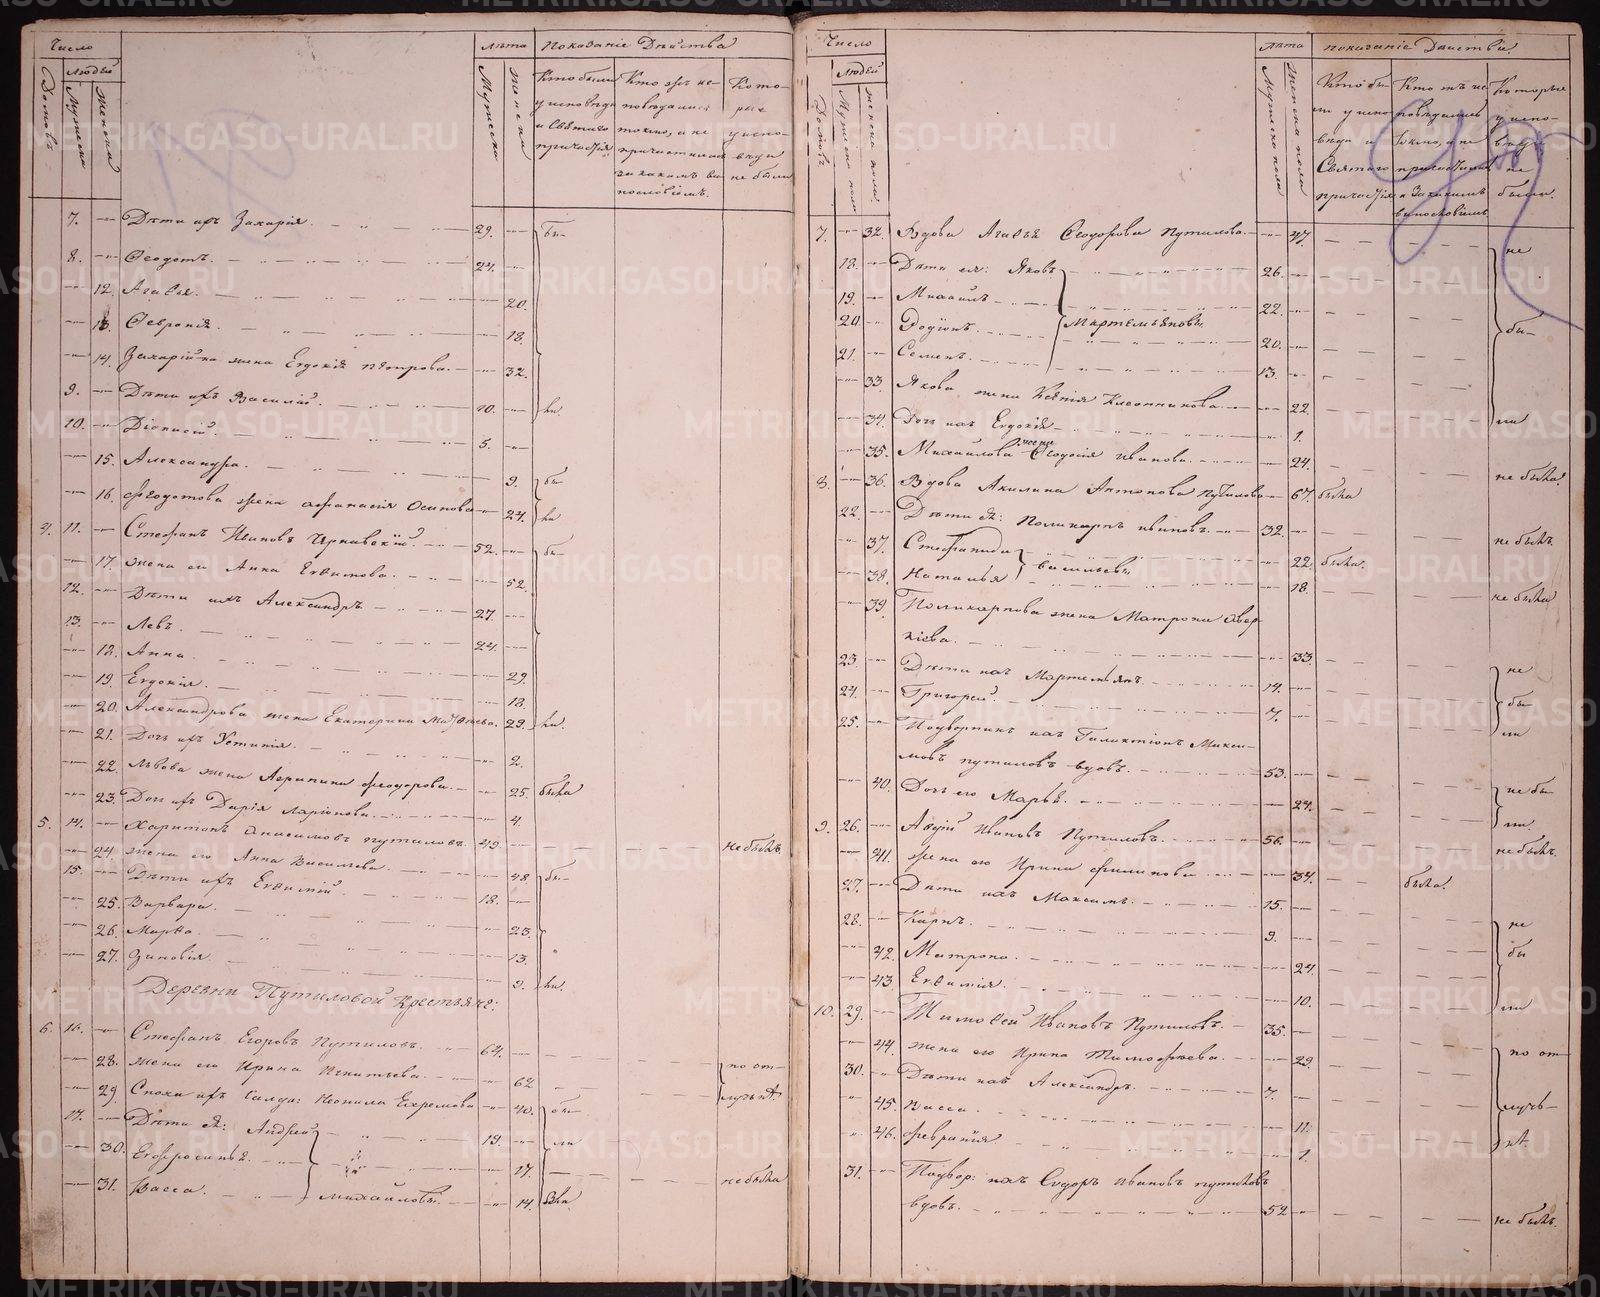 Число
Лѣта
Показаніе Дѣйства
Домовъ
Людей
Мужеска
Женска
Мужеска
Женска
Кто были у исповѣди и Святаго причастія
Кто жъ исповѣдались токмо, а не причастились и за какимъ винословіемъ.
Которые у исповѣди не были
7. Дѣти ихъ Захарія. 29. Бы-
8. Ѳеодотъ. 24.
12. Агаѳья. 20.
13. Ѳевронія. 18.
14. Захаріина жена Евдокія Петрова. 32.
9. Дѣти ихъ Василій. 10. ли
10. Діонисій. 5.
15. Александра. 9. бы-
16. Ѳеодотова жена Афанасія Осипова 24. ли
4. 11. Стефанъ Ивановъ 52. бы-
17. жена его Анна Евѳимова. 52.
12. Дѣти ихъ Александръ 27.
13. Левъ. 24.
18. Анна. 29.
19. Евдокія. 18.
20. Александрова жена Екатерина Матвѣева. 29. ли.
21. Дочь ихъ Устинія. 2.
22. Львова жена Агрипина Феодорова. 25. была
23. Дочь ихъ Дарія Ларіонова. 4.
5. 14. Харитонъ Анисимовъ Путиловъ. 49 не былъ.
24. жена его Анна Васильева. 48. бы-
15. Дѣти ихъ Евѳимій 18.
25. Варвара. 23.
26. Марѳа. 13.
27. Зиновія. 9. ли.
Деревни Путиловой Крестьяне:
6. 16. Стефанъ Егоровъ Путиловъ. 64.
28. жена его Ирина Игнатьева. 62 по от-
29. Сноха ихъ Солда: Неонила Ефремова 40. бы- лучкѣ.
17. Дѣти ея: Андрей 19. ли
30. Евфросинья. 17. не была
31. Васса. Михайловы. 14. была.
Число
Лѣта
показаніе Дѣйствій
Домовъ
Людей
Мужеска пола
женска пола.
Мужеска пола
Женска пола
Кто были у исповѣди и Святаго причастія
Кто жъ исповѣдались токмо, а не причастились и За какимъ винословіемъ
Которые у исповѣди не были.
7. 32. Вдова Агаѳья Ѳеодорова Путилова. 47. не
18. Дѣти ея: Яковъ 26.
19. Михаилъ 22.
20. Родіонъ Мартемьяновы. 20. бы-
21. Семенъ. 13.
33. Якова жена Ксѣнія Клеопникова. 22.
34. Дочь ихъ Евдокія 1. ли
35. Михайлова жена Ѳеодосія Иванова. 24. не была.
8. 36. Вдова Акилина Антонова Путилова 67. была
22. Дѣти Я: Поликарпъ Ивановъ. 32. не былъ.
37. Стефанида 22. была.
38. Наталья Васильевы 18. не была
39. Поликарпова жена Матрона Авер-
кіева. 33. не
23. Дѣти ихъ Мартемьянъ. 14.
24. Григорей. 7. бы-
25. Подворникъ ихъ Галактіонъ Макси- ли
мовъ путиловъ вдовъ. 53. не бы-
40. Дочь его Марья. 24. ли.
9. 26. Авдій Ивановъ Путиловъ. 56. не былъ.
41. жена его Ирина филипова 34. была.
27. Дѣти ихъ Максимъ. 15.
28. Карпъ. 9. не
42. Матрона. 24. бы
43. Евѳимія. 10. ли
10. 29. Тимоѳей Ивановъ Путиловъ. 35.
44. жена его Ирина Тимофѣева. 29. по от-
30. Дѣти ихъ Александръ. 7.
45. Васса. 11. луч-
46. Февранія 1. кѣ.
31. Подвор: ихъ Сидоръ Ивановъ путиловъ
вдовъ. 52 не былъ.
METRIKI.GASO-URAL.RU